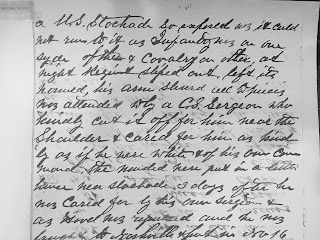 a U.S. Stockade so exposed was it could
not run to it as Infantry was on one
syde of them & Cavalry on other, at
night Regiment sliped out, left its
wounded, his arm shured all to pieces
was attended to by a C.S. Surgeon who
kindly cut it off for him near the
Shoulder & cared for him as kind
ly as if he were white & of his own Com
mand, the wounded were put in a little
house near stockade 3 days after he
was cared for by his own surgeon &
as Travel was repaired and he was
to Nashville & put in No 16